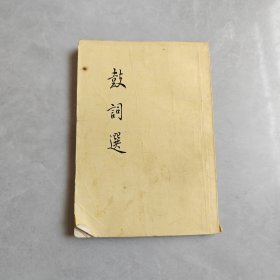 鼓詞選